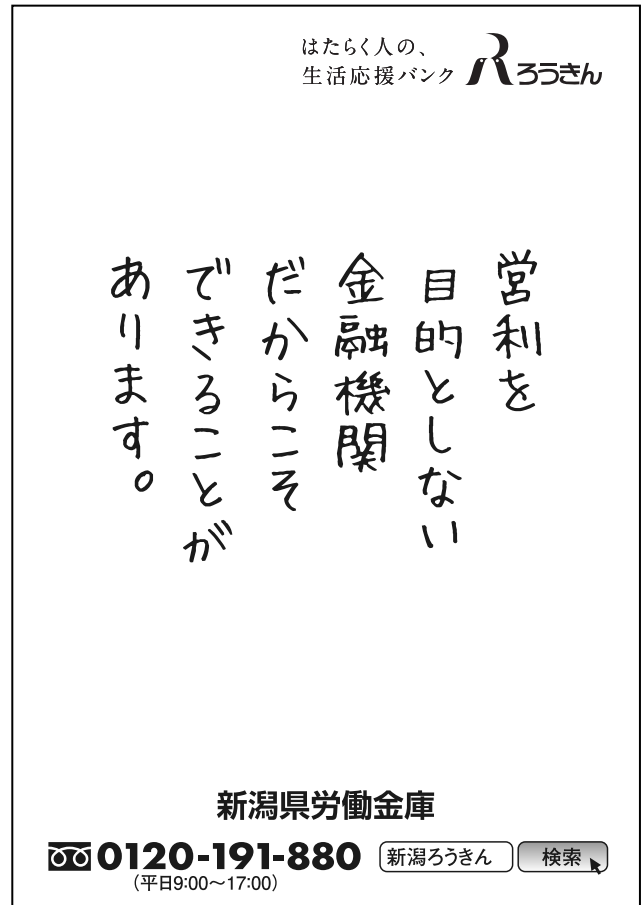 はたらく人の、
生活応援バンク
ろうきん
営利を
目的としない
金融機関
だからこそ
できることが
あります。
新潟県労働金庫
0120-191-880
(平日9:00～17:00)
新潟ろうきん
検索